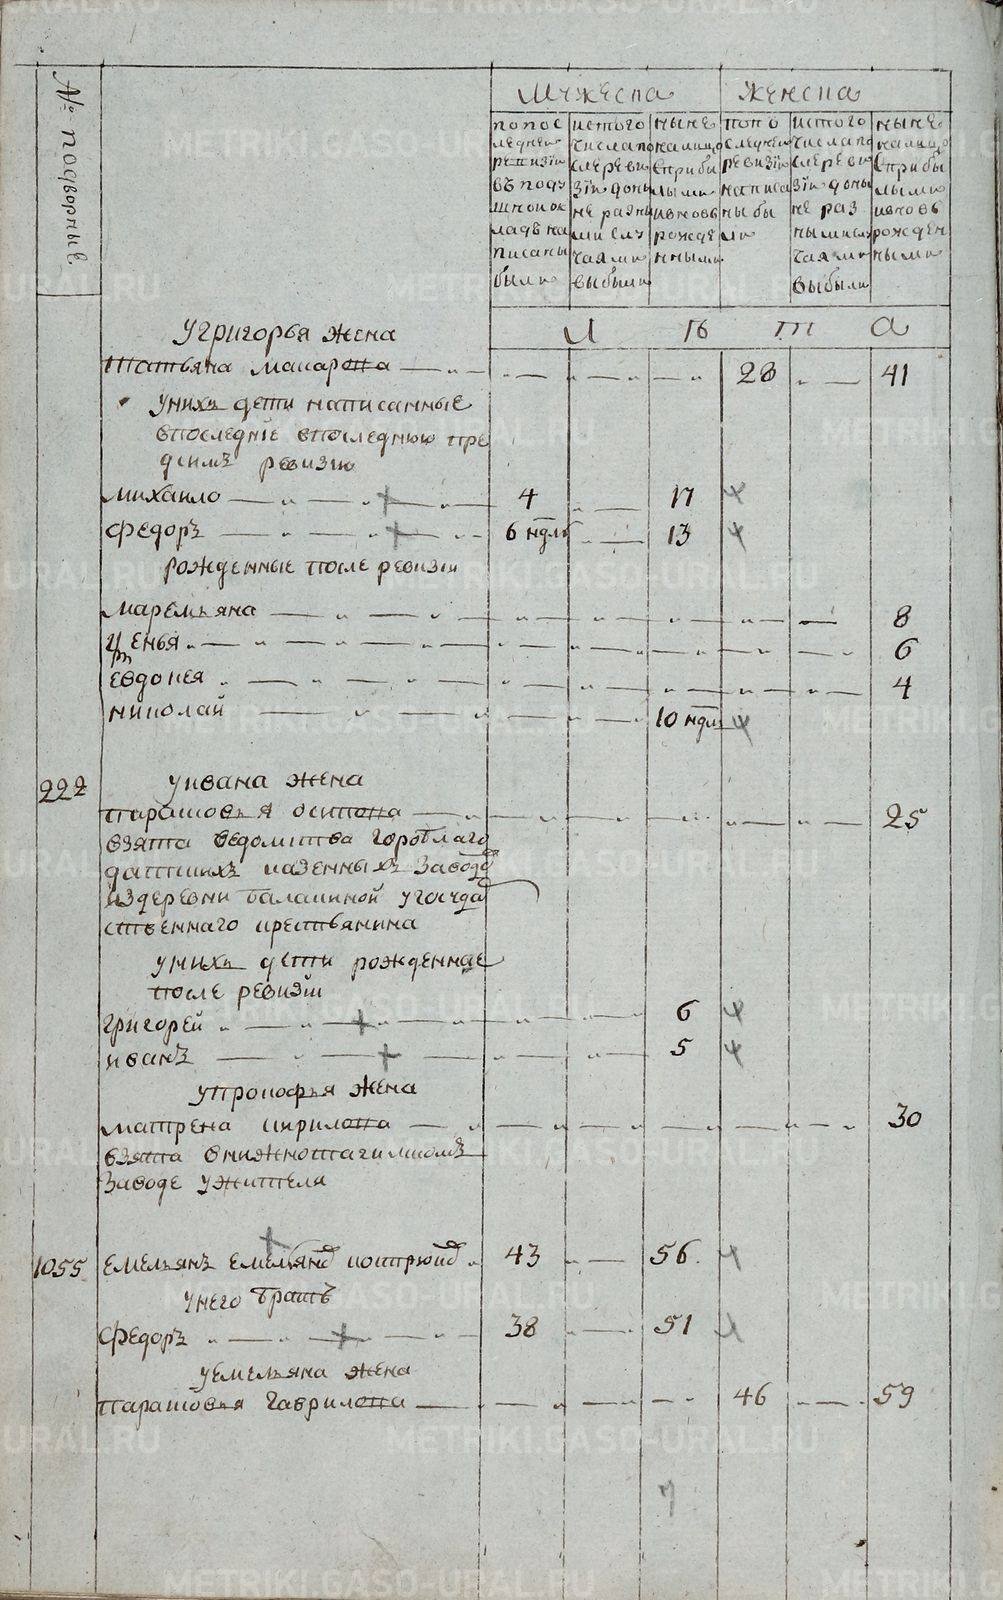 № подворные
Мужеска женска
попос
леднеи
ревизiи
въ поду
шнои ок
ладъ на
писаны
были
истого
числа по
слъ реви
зiи доны
не разны
ми слу
чаями
выбыли
ныне
налицо
сприбы
лыми
ивновь
рожде
нными
попо
следнеи
ревизiи
написа
ны бы
ли
истого
числа по
слъ реви
зiи доны
не раз
ными слу
чаями
выбыли
ныне
налицо
сприбы
лыми
ивновь
рожден
ными
Л ѣ т а
Угригорья жена
татьяна макарова 28 41
унихъ дети написанные
впоследнiе впоследнюю пре
дсимъ ревизiю
михаило 4 17
федоръ 6 ндль 13
рожденные после ревизiи
маремьяна 8
6
евдокея 4
николай 10 ндль
222 уивана жена
парасковья осипова 25
взята ведомства гороблаго
датскихъ казенныхъ заводовъ
издеревни балакиной угосуда
ственнаго крестьянина
унихъ дети рожденные
после ревизiи
григорей 6
иванъ 5
упрокофья жена
матрена кирилова 30
взята внижнотагилскомъ
заводе ужителя
1055 емельянъ емельяновъ 43 56
унего братъ
федоръ 38 51
уемельяна жена
парасковья гаврилова 46 59
7
METRIKI.GASO-URAL.RU